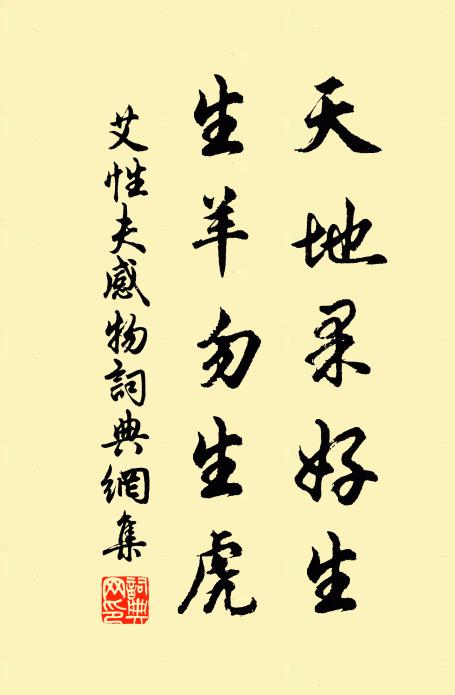 天地果好生
生羊勿生虎
艾性夫感物詞典網集
詞典網印